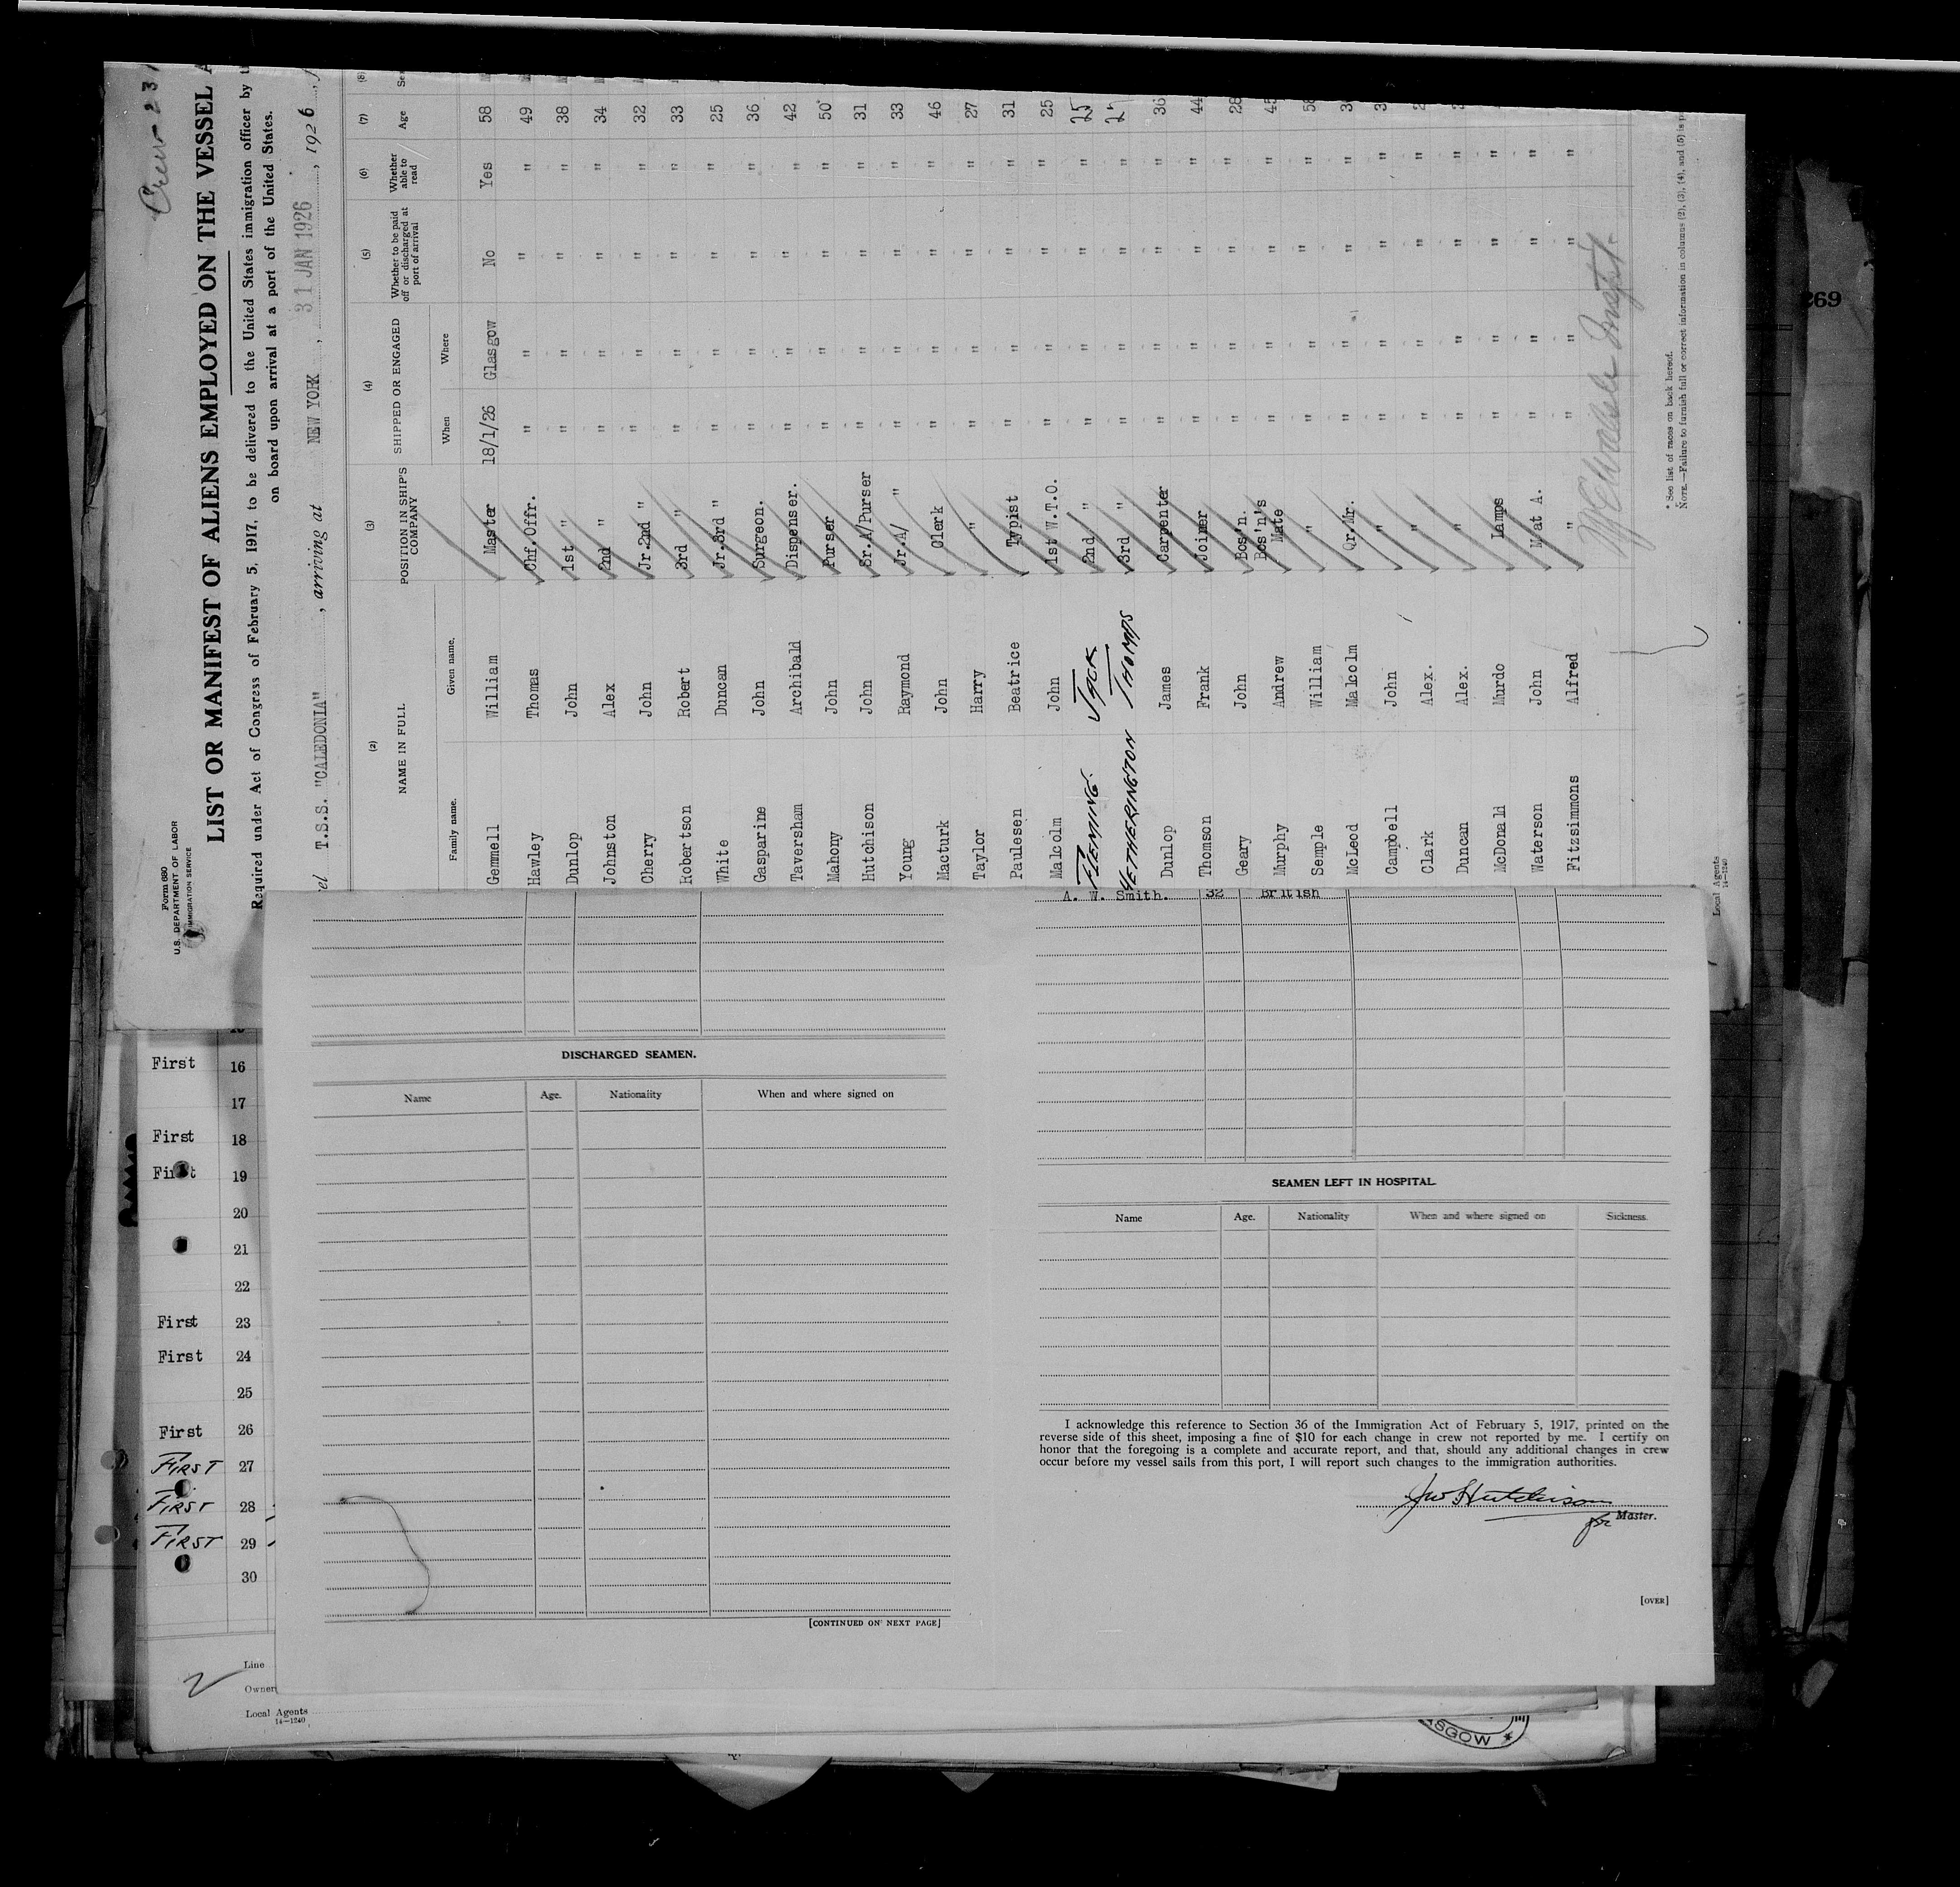 Crew 231
Form 680
U.S. DEPARTMENT OF LABOR
IMMIGRATION SERVICE
LIST OR MANIFEST OF ALIENS EMPLOYED ON THE VESSEL A
Required under Act of Congress of February 5, 1917, to be delivered to the United States immigration officer by t
on board upon arrival at a port of the United States.
el T.S.S. "CALEDONIA", arriving at NEW YORK, 31 JAN 1926, 1926,
(2) (3) (4) (5) (6) (7) (8)
NAME IN FULL POSITION IN SHIP'S COMPANY SHIPPED OR ENGAGED Whether to be paid off or discharged at port of arrival Whether able to read Age Se
Family name. Given name. When Where
Gemmell William Master 18/1/26 Glasgow No Yes 58
Hawley Thomas Chf.Offr. " " " " 49
Dunlop John 1st " " " " " 38
Johnston Alex 2nd " " " " " 34
Cherry John Jr.2nd " " " " " 32
Robertson Robert 3rd " " " " " 33
White Duncan Jr.3rd " " " " " 25
Gasparine John Surgeon. " " " " 36
Taversham Archibald Dispenser. " " " " 42
Mahony John Purser " " " " 50
Hutchison John Sr.A/Purser " " " " 31
Young Raymond Jr.A/ " " " " " 33
Macturk John Clerk " " " " 46
Taylor Harry " " " " " 27
Paulesen Beatrice Typist " " " " 31
Malcolm John 1st W.T.O. " " " " 25
FLEMING JACK 2nd " " " " " 25
HETHERINGTON THOMAS 3rd " " " " "
Dunlop James Carpenter " " " " 36
Thomson Frank Joiner " " " " 44
Geary John Bos'n. " " " " 28
Murphy Andrew Bos'n's Mate " " " " 45
Semple William " " " " " 58
McLeod Malcolm Qr.Mr. " " " "
Campbell John " " " " "
Clark Alex. " " " " "
Duncan Alex. " " " " "
McDonald Murdo Lamps " " " "
Waterson John M.at A. " " " "
Fitzsimmons Alfred " " " " "
* See list of races on back hereof.
NOTE.—Failure to furnish full or correct information in columns (2), (3), (4), and (5) is p
Local Agents
14—1240
269
A. W. Smith. 32 British
DISCHARGED SEAMEN.
Name Age. Nationality When and where signed on
[CONTINUED ON NEXT PAGE]
SEAMEN LEFT IN HOSPITAL.
Name Age. Nationality When and where signed on Sickness.
I acknowledge this reference to Section 36 of the Immigration Act of February 5, 1917, printed on the
reverse side of this sheet, imposing a fine of $10 for each change in crew not reported by me. I certify on
honor that the foregoing is a complete and accurate report, and that, should any additional changes in crew
occur before my vessel sails from this port, I will report such changes to the immigration authorities.
Jno Hutchison
for Master.
[OVER]
First 16
17
First 18
First 19
20
21
22
First 23
First 24
25
First 26
FIRST 27
FIRST 28
FIRST 29
30
2
Line
Owner
Local Agents
14—1240
ASGOW *